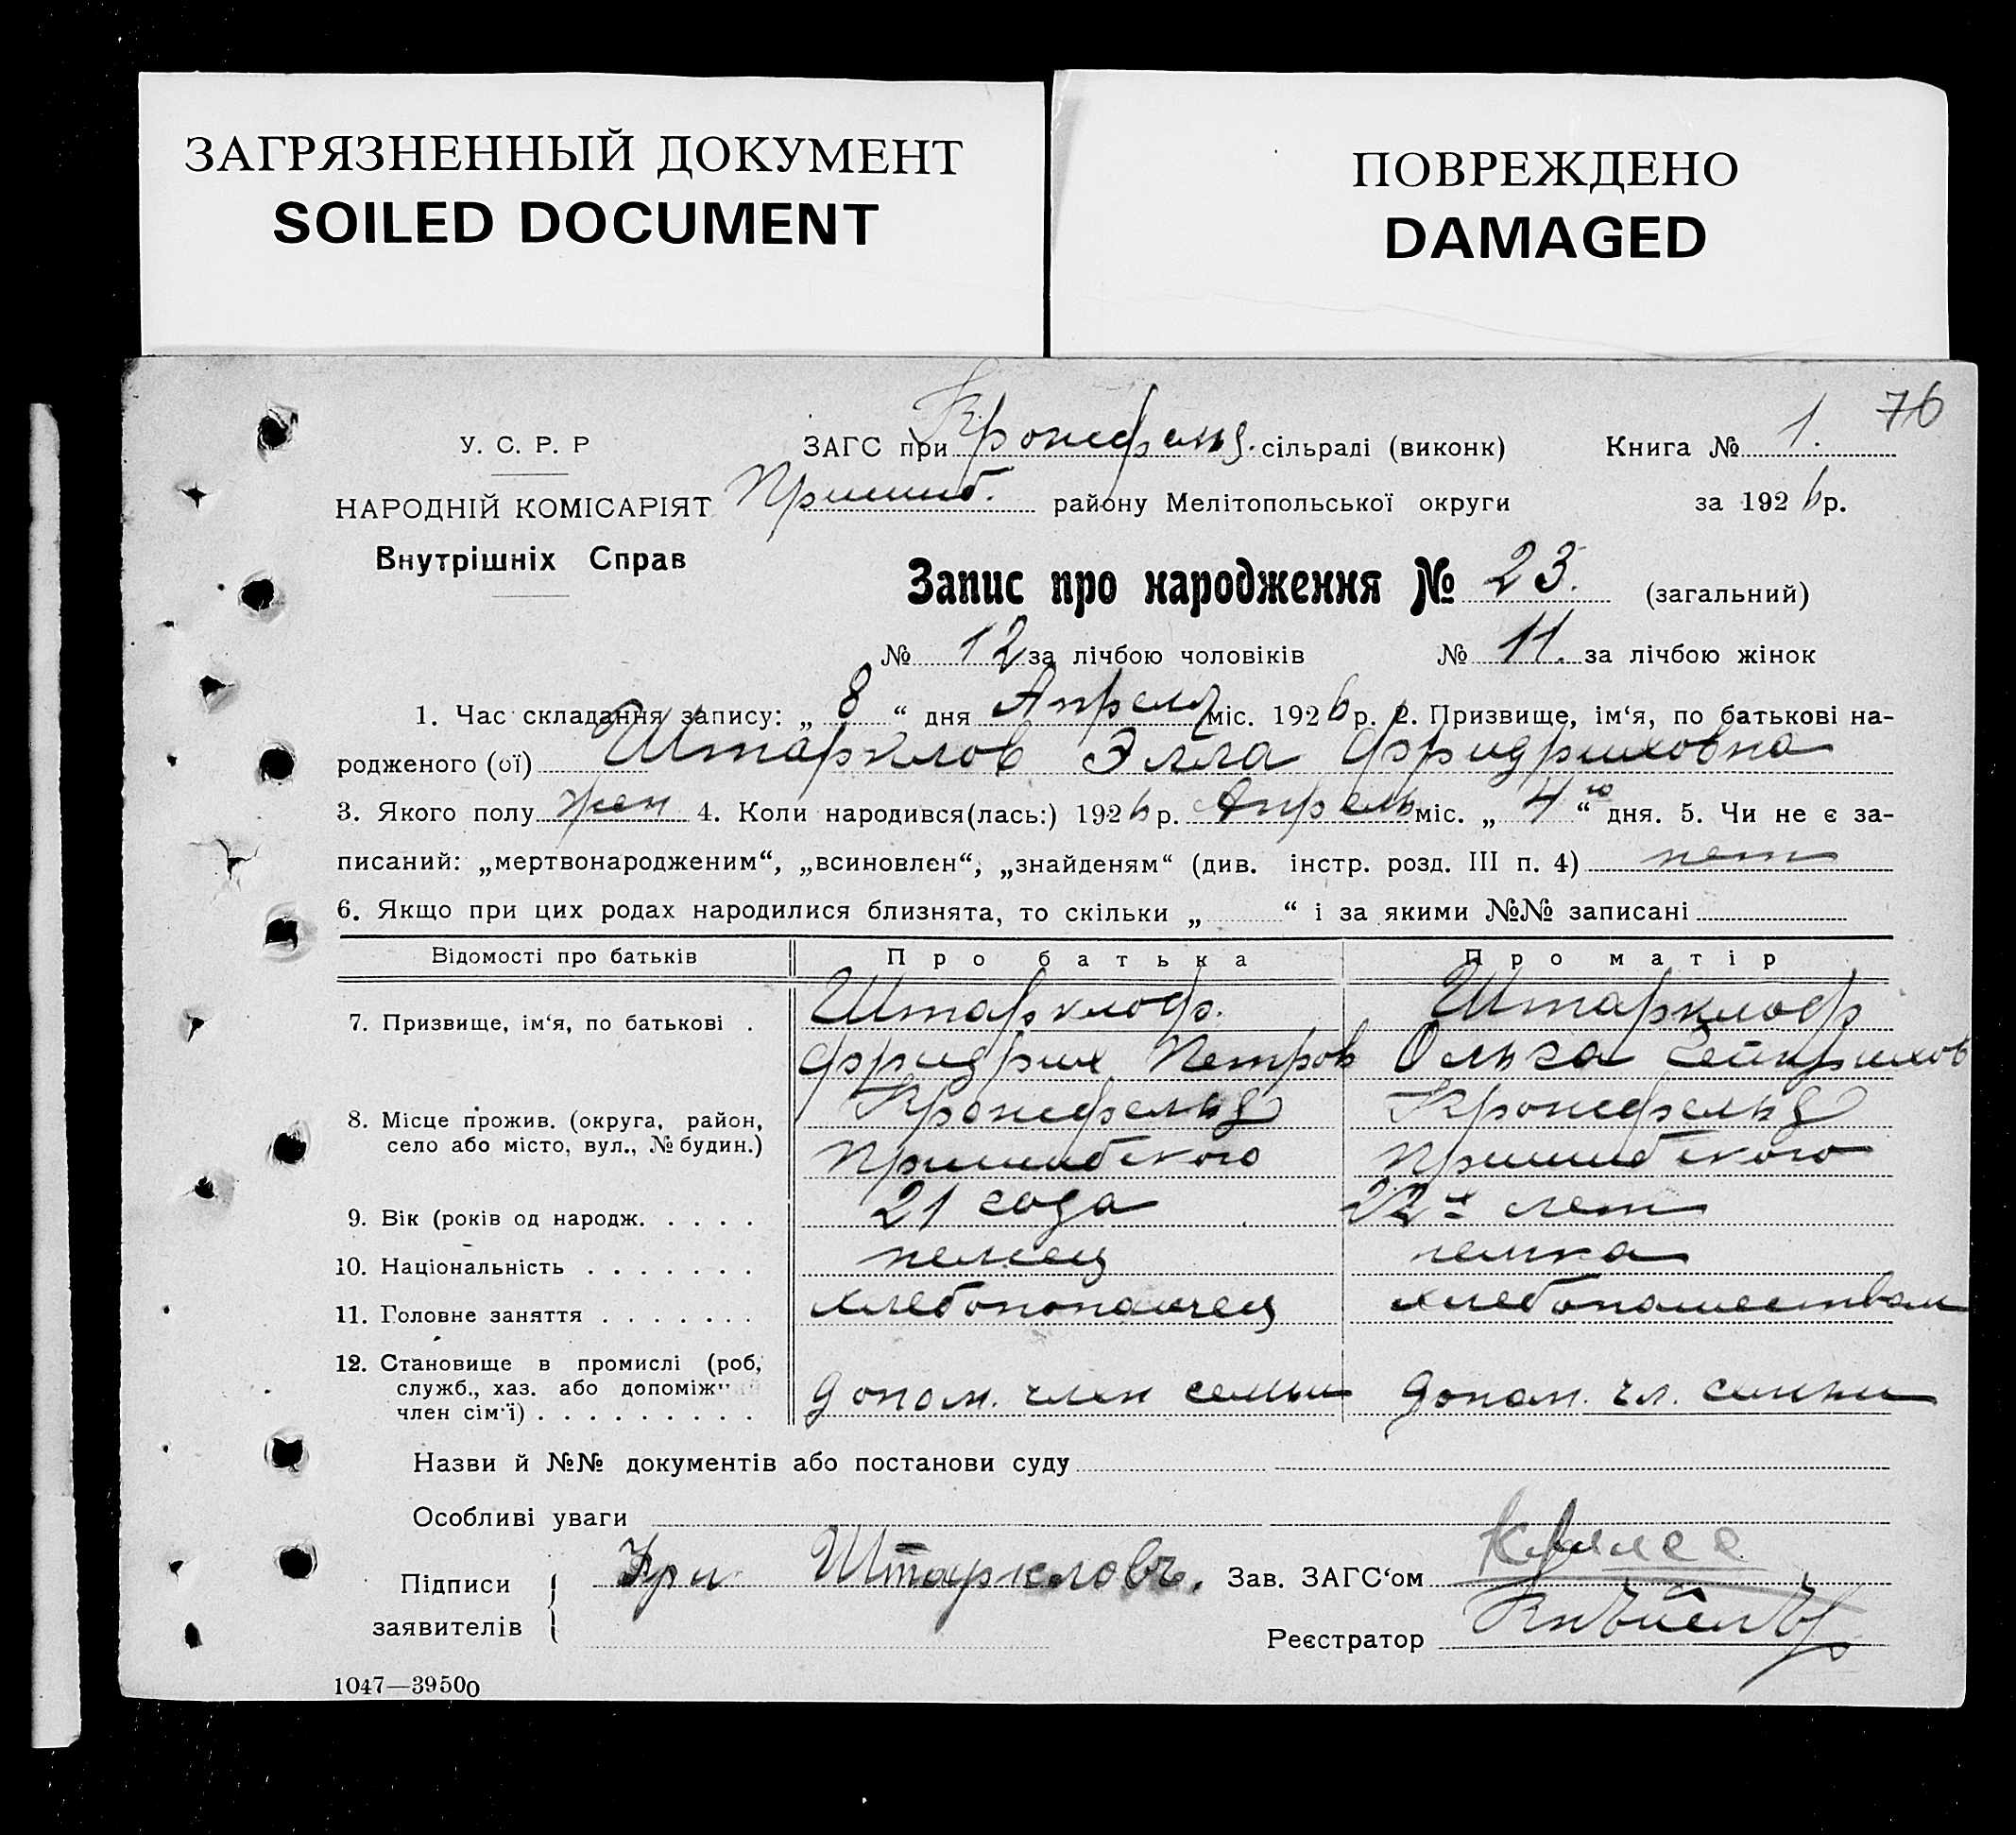 ЗАГРЯЗНЕННЫЙ ДОКУМЕНТ
SOILED DOCUMENT
ПОВРЕЖДЕНО
DAMAGED
76
У. С. Р. Р
ЗАГС при Кронсфельд. сільраді (виконк) Книга № 1.
НАРОДНІЙ КОМІСАРІЯТ Пришиб. району Мелітопольської округи за 1926 р.
Внутрішніх Справ
Запис про народження № 23. (загальний)
№ 12 за лічбою чоловіків № 11. за лічбою жінок
1. Час складання запису: „ 8 “ дня Апреля міс. 1926 р. 2. Призвище, ім‘я, по батькові на-
родженого (ої) Штарклов Элла Фридриховна
3. Якого полу жен 4. Коли народився(лась:) 1926 р. Апрель міс. „ 4го “ дня. 5. Чи не є за-
писаний: „мертвонародженим“, „всиновлен“, „знайденям“ (див. інстр. розд. III п. 4) нет
6. Якщо при цих родах народилися близнята, то скільки „ “ і за якими №№ записані
Відомості про батьків Про батька Про матір
7. Призвище, ім‘я, по батькові . Штарклоф. Штарклоф
Фридрих Петров Ольга Гейнрихов
8. Місце прожив. (округа, район, Кронсфельд Кронсфельд
село або місто, вул., № будин.) Пришибского Пришибского
9. Вік (років од народж. . . . . 21 года 22х лет
10. Національність . . . . . . . немец немка
11. Головне заняття . . . . . . . хлебопопашец хлебопашеством
12. Становище в промислі (роб,
служб., хаз. або допоміжний допом. член семьи допом. чл. семьи
член сім‘ї) . . . . . . . . .
Назви й №№ документів або постанови суду
Особливі уваги
Підписи Фри Штаркловъ. Зав. ЗАГС‘ом
заявителів Реєстратор
1047—39500